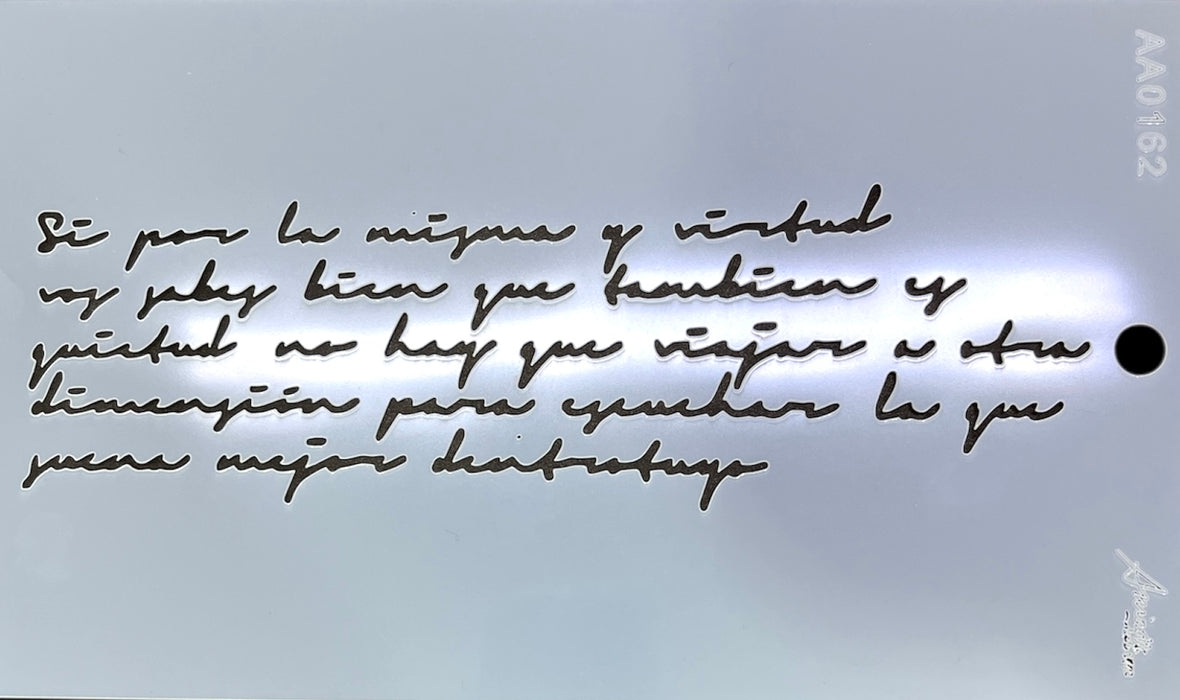 Si por la misma y virtud
vos sabes bien que tambien es
quietud no hay que viajar a otra
dimensión para escuchar la que
suena mejor dentrotuyo
AA0162